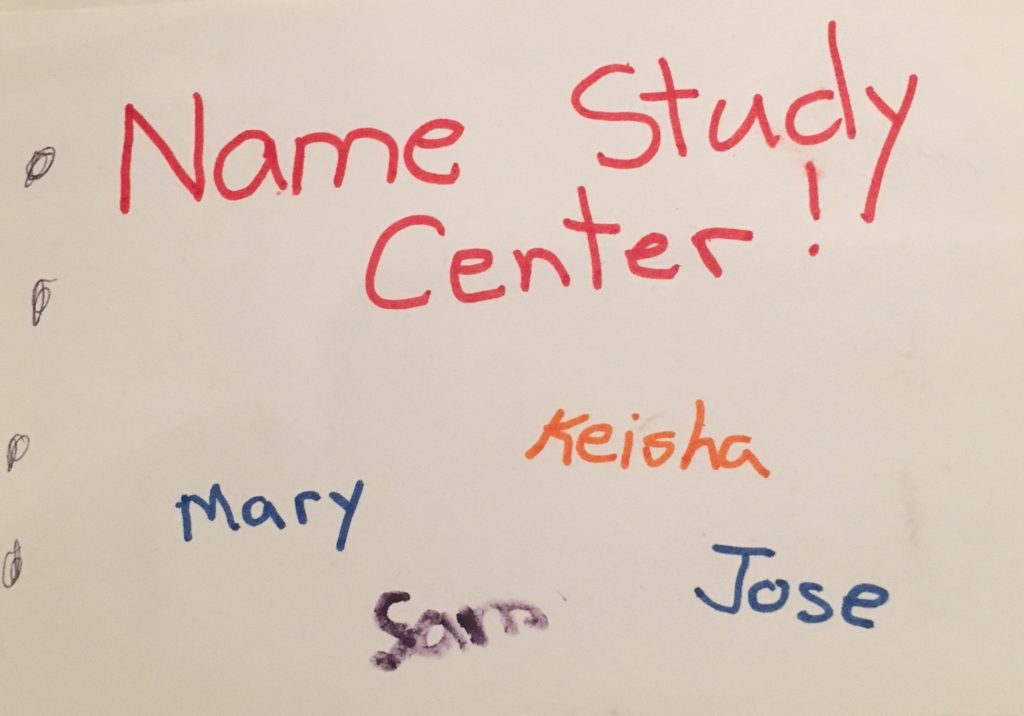 Name Study
Center!
Keisha
Mary
Jose
Sam